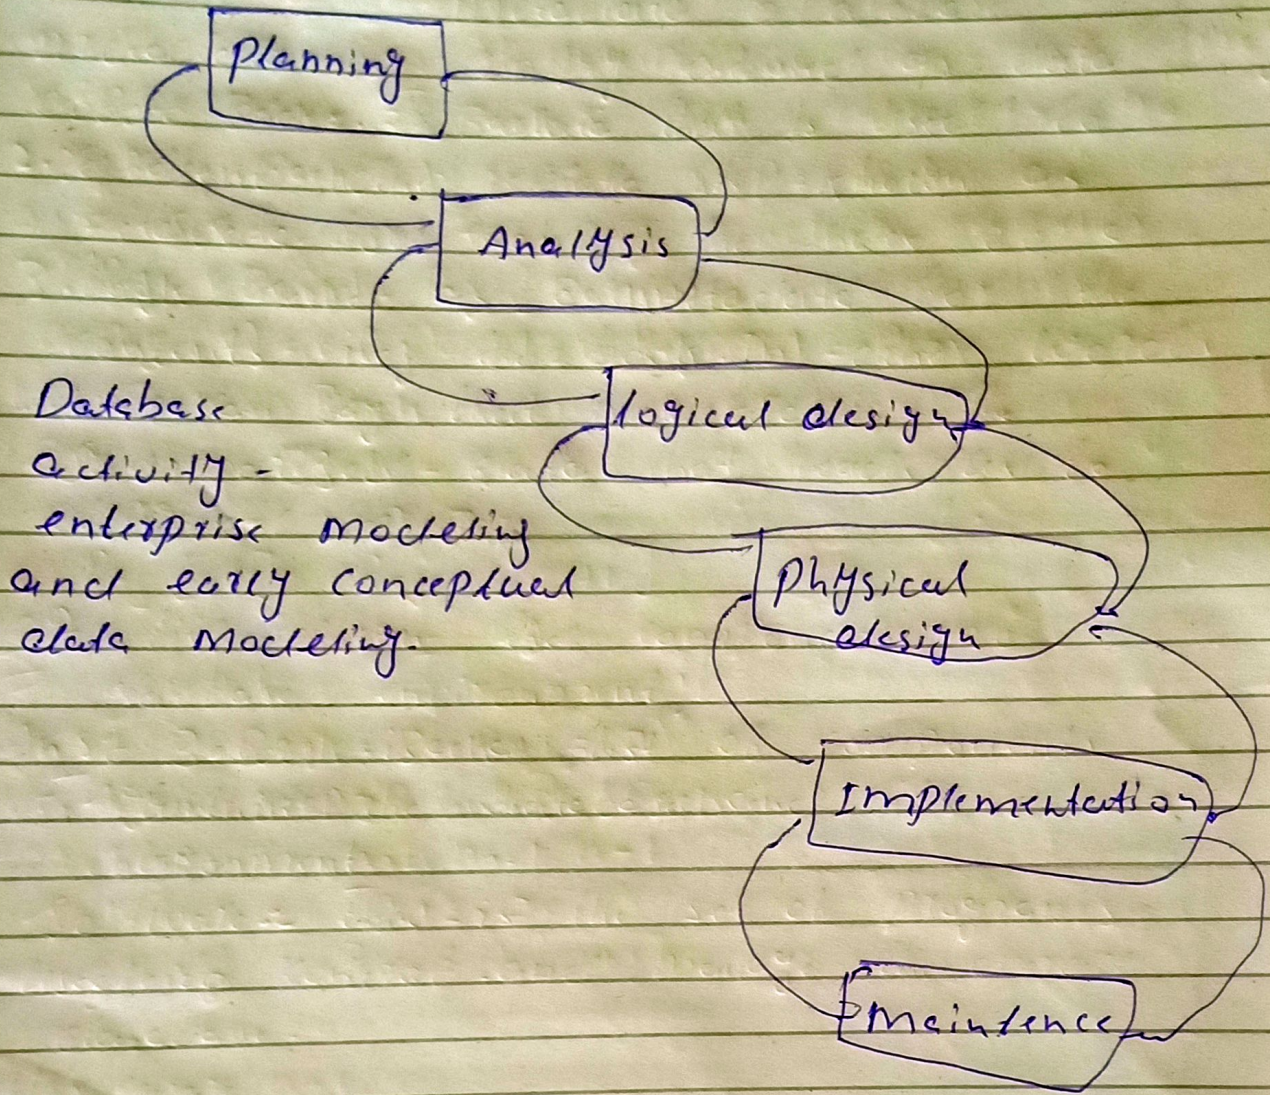 Planning
Analysis
logical design
Database
activity -
enterprise modeling
and early conceptual
data modeling.
Physical
design
Implementation
maintence